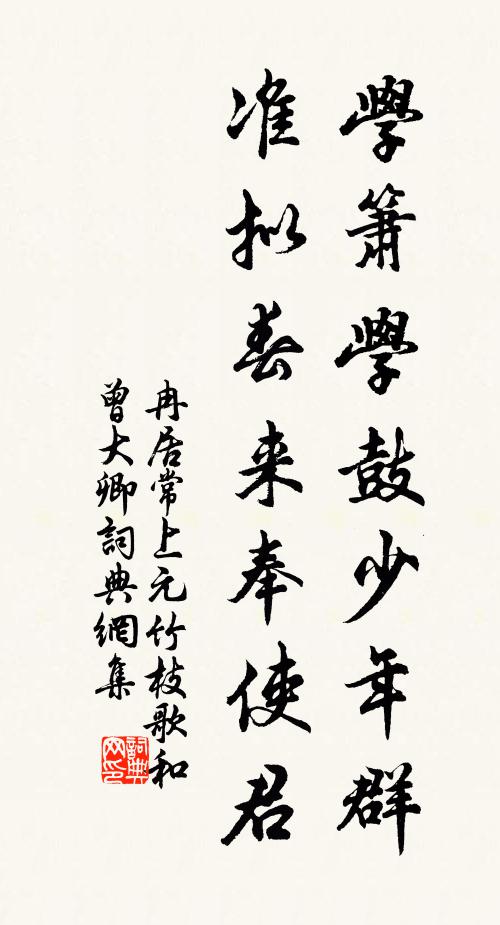 學簫學鼓少年群
准拟春来奉使君
冉居常上元竹枝歌和
曾大卿詞典網集
詞典
网印